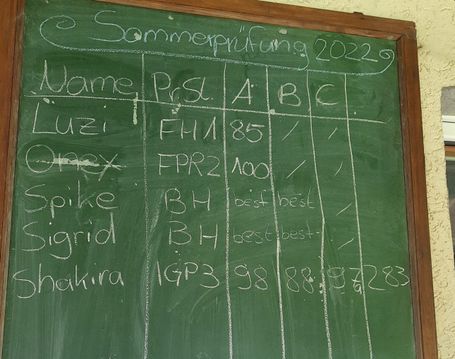 Sommerprüfung 2022
Name PrSt. A B C
Luzi FH1 85 / /
Onex FPR2 100 / /
Spike BH best best /
Sigrid BH best best /
Shakira IGP3 98 88 97a 283